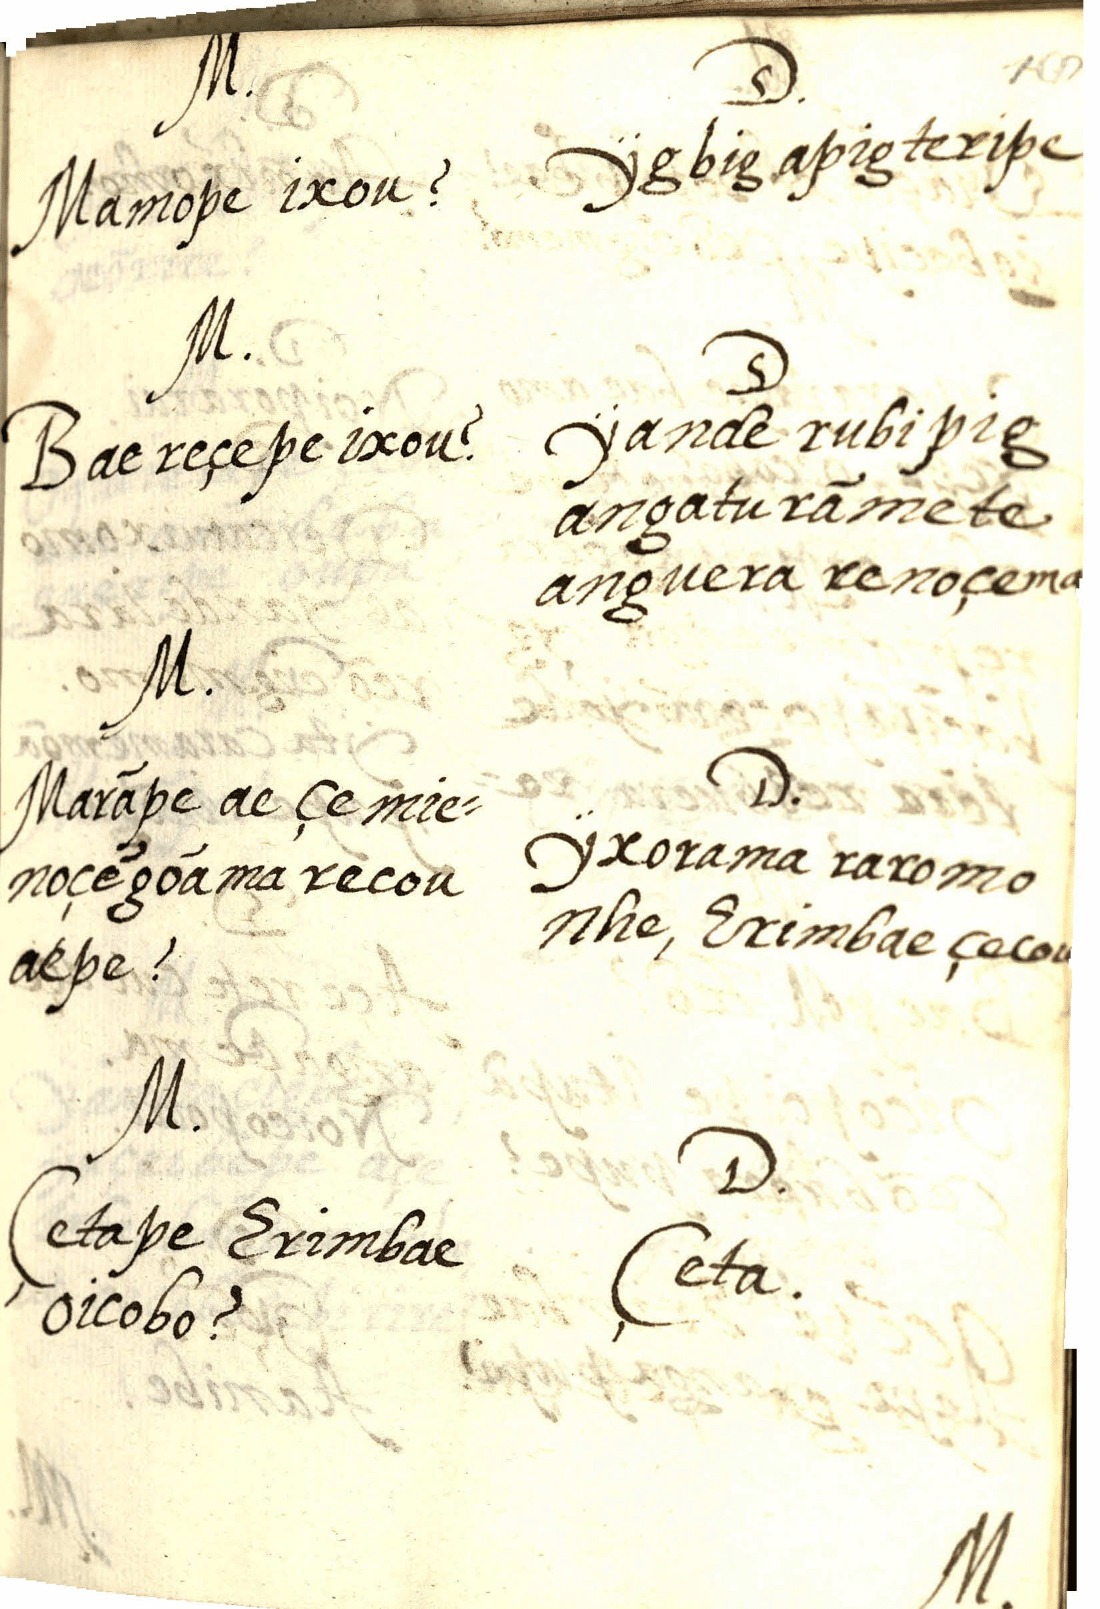 M.
Mamope ixou?
D.
ÿgbig apigteripe
M.
Bae reçepe ixou?
D.
ÿande rubipig
angaturãmete
anguera renoçema
M.
Marãpe ae çe mie-
noçẽgõama recou
aepe?
D.
ÿxorama raromo
nhe, Erimbae çecou
M.
Çetape Erimbae
oicobo?
D.
Çeta.
M.